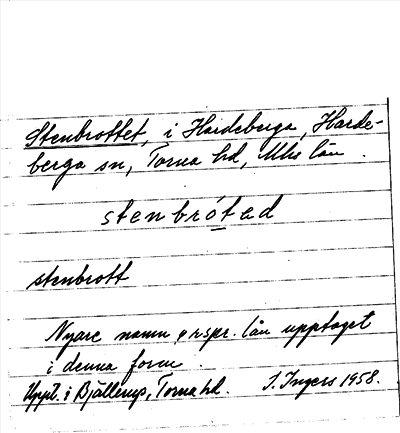 Stenbrottet, i Hardeberga, Harde-
berga sn, Torna hd, Mhs län.
stenbrótəd
stenbrott
Nyare namn, ur spr. lån upptaget
i denna form.
Uppt. i Bjällerup, Torna hd. I. Ingers 1958.